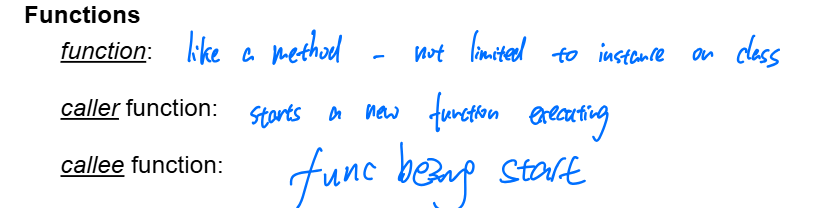 Functions
function: like a method - not limited to instance or class
caller function: starts a new function executing
callee function: func being start